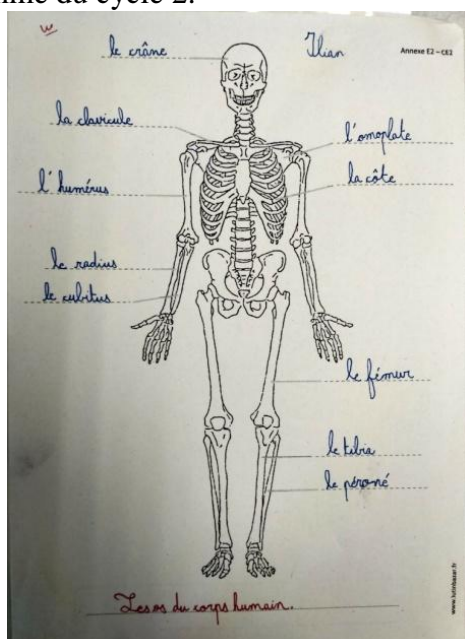 me du cycle 2.
le crâne
Ilian
Annexe E2 – CE2
la clavicule
l'omoplate
l'humérus
la côte
le radius
le cubitus
le fémur
le tibia
le péroné
Les os du corps humain.
www.lutinbazar.fr